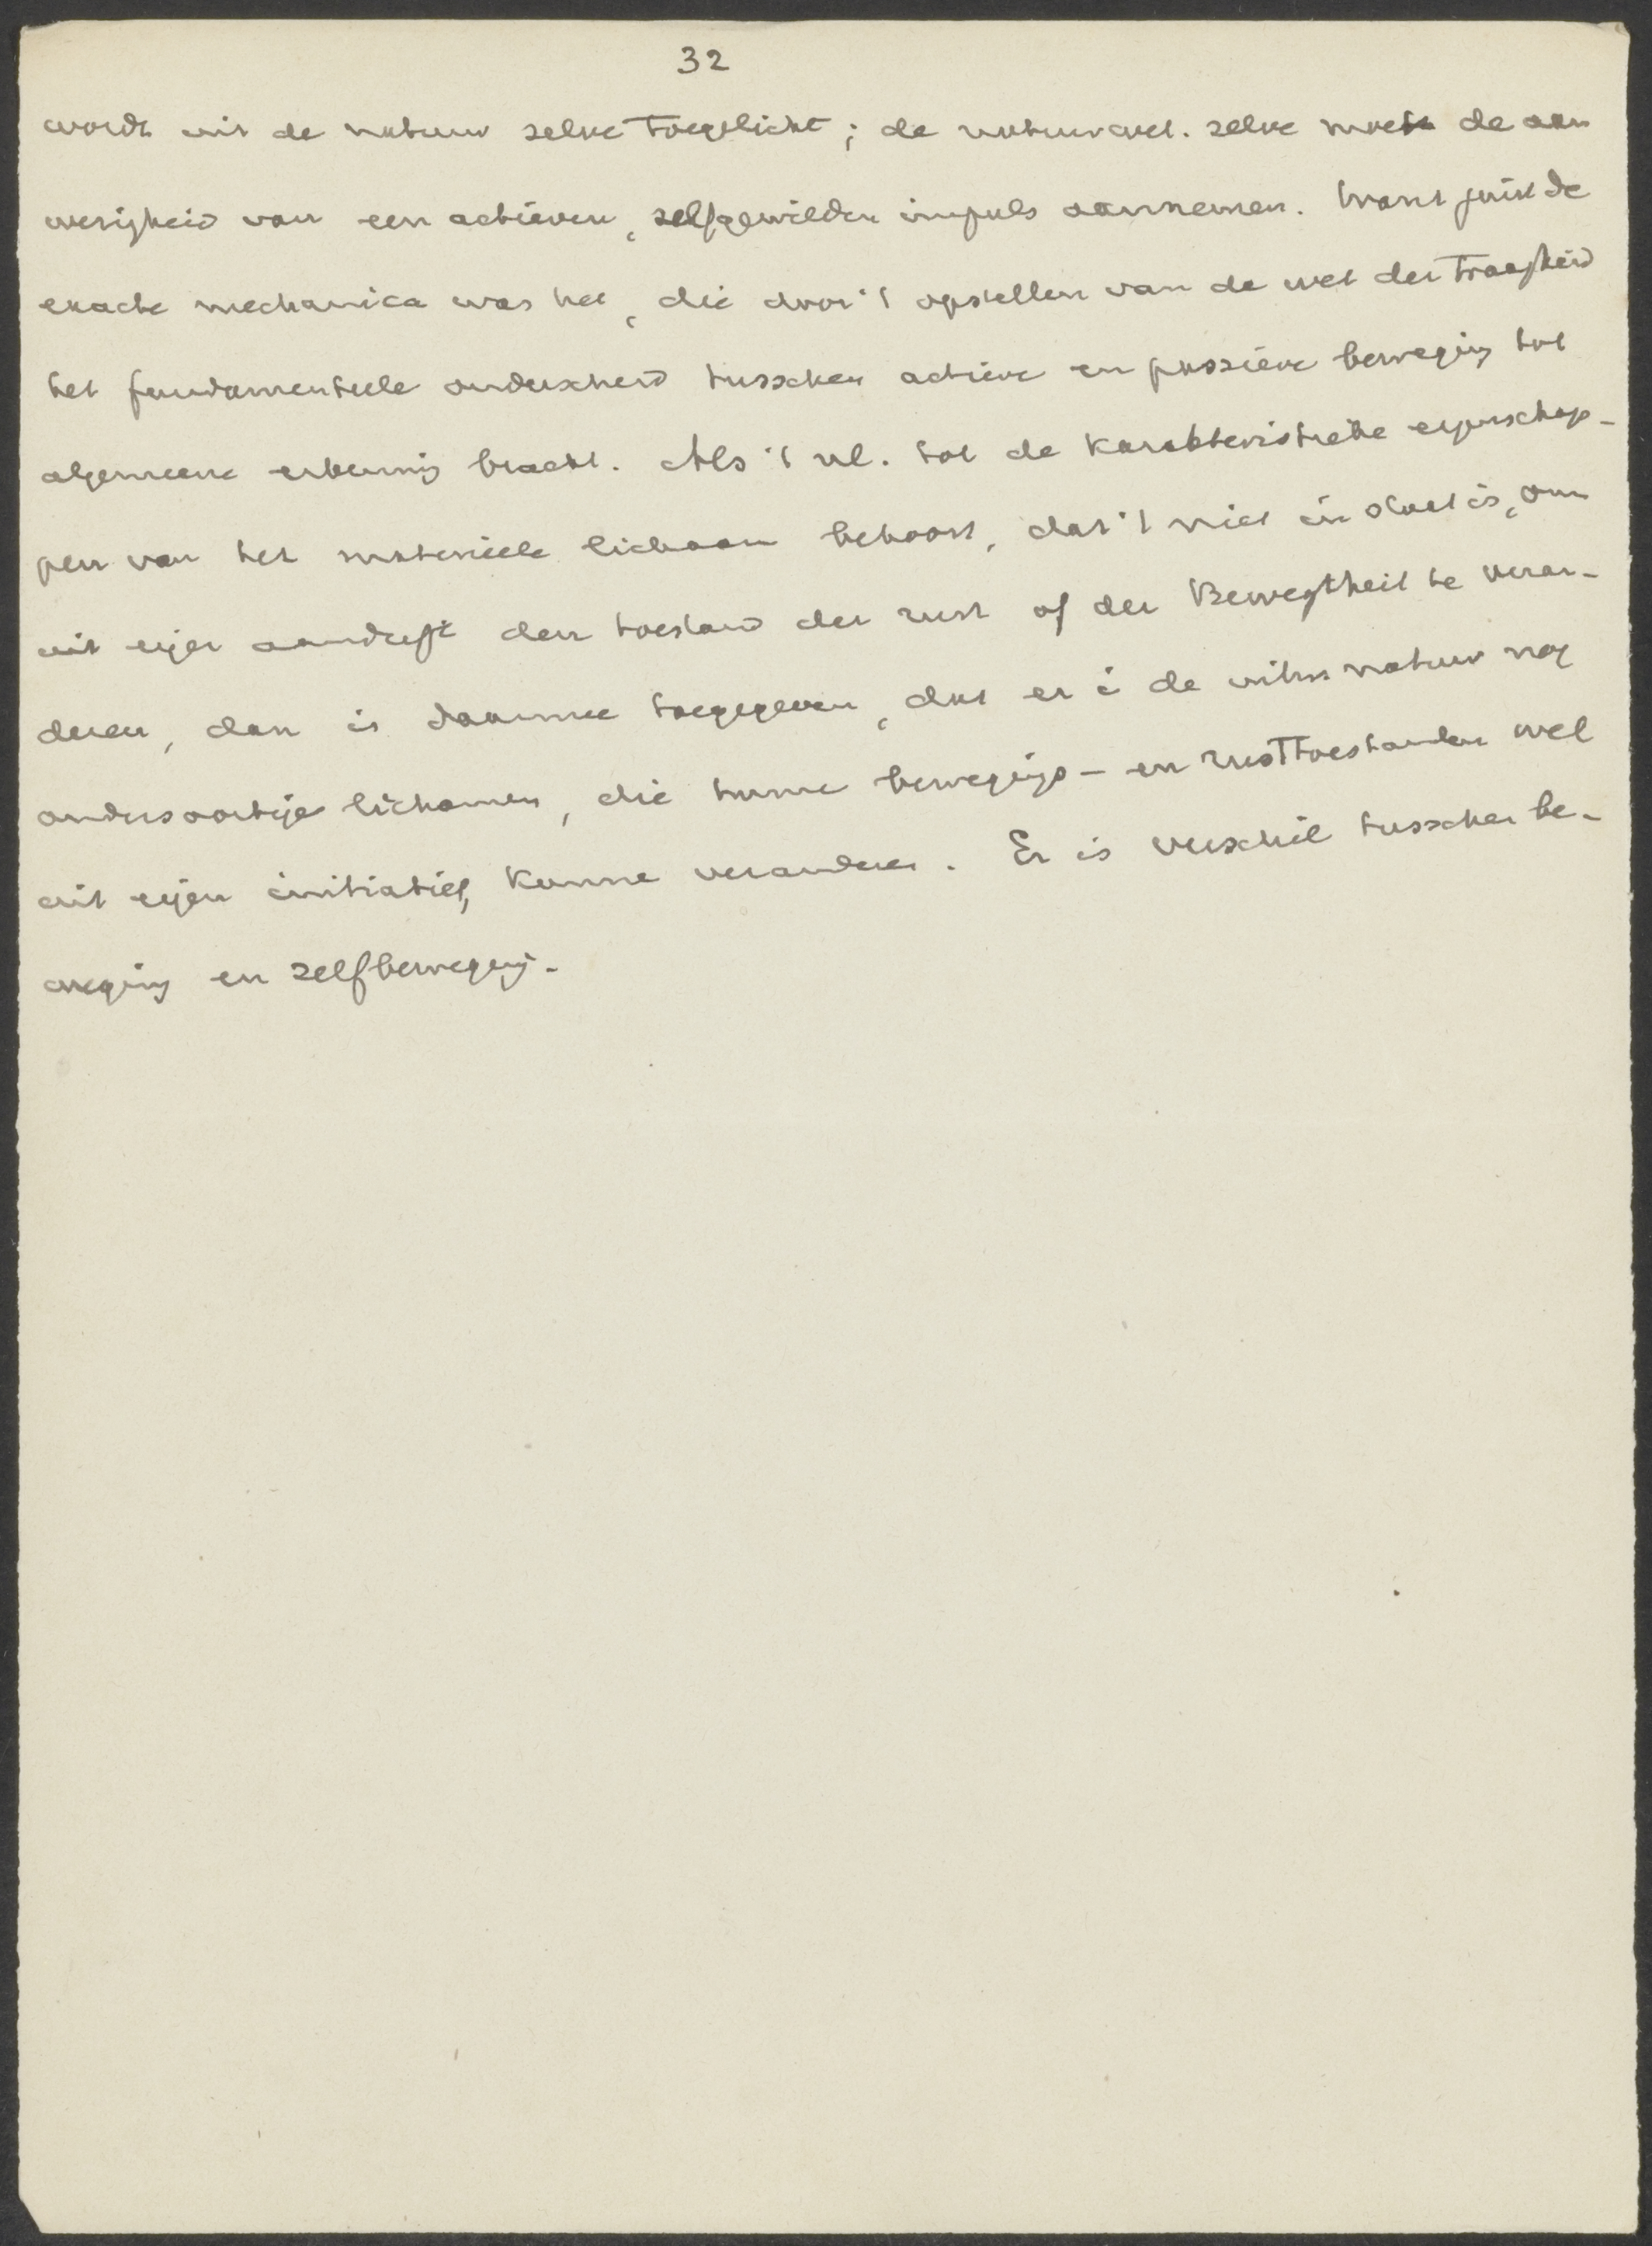 32
wordt uit de natuur zelve toegelicht; de natuurwet. zelve moest de aan
wezigheid van een actieven, zelfgewilden impuls aannemen. Want juist de
exacte mechanica was het, die door 't opstellen van de wet der traagheid
het fundamenteele onderscheid tusschen actieve en passieve beweging tot
algemeene erkenning bracht. Als 't nl. tot de karakteristieke eigenschap-
pen van het materieele lichaam behoort, dat 't niet in staat is, om
uit eigen aandrift den toestand der rust of der Bewegtheit te veran-
deren, dan is daarmee toegegeven, dat er i de natuur nog
andersoortige lichamen, die hunne bewegings- en rusttoestanden wel
uit eigen initiatief, kunne veranderen. Er is verschil tusschen be-
weging en zelfbeweging.